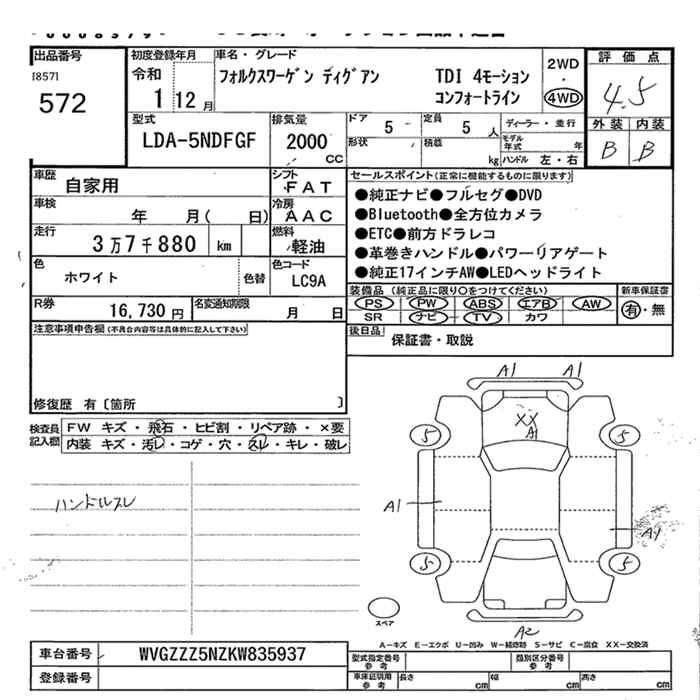 出品番号
[857]
572
初度登録年月
令和
1 12月
車名・グレード
フォルクスワーゲン ティグアン TDI 4モーション
コンフォートライン
2WD
・
4WD
評価点
4.5
外装 内装
B B
型式
LDA-5NDFGF
排気量
2000
CC
ドア 5
定員 5人
形状
積載 kg
ディーラー・並行
モデル年式 年
ハンドル 左・右
車歴 自家用
シフト FAT
車検 年 月( 日)
冷房 AAC
走行 3万7千880 km
燃料 軽油
色 ホワイト
色替
色コード LC9A
R券 16,730円
名変通知期限 月 日
セールスポイント(正常に機能するものに限ります)
●純正ナビ●フルセグ●DVD
●Bluetooth●全方位カメラ
●ETC●前方ドラレコ
●革巻きハンドル●パワーリアゲート
●純正17インチAW●LEDヘッドライト
装備品 (純正品に限り○をつけてください)
新車保証書
PS PW ABS エアB AW
SR ナビ TV カワ
有・無
後日品
保証書・取説
注意事項申告欄(不具合内容等は具体的に記入して下さい)
修復歴 有〔箇所 〕
検査員記入欄
FW キズ・飛石・ヒビ割・リペア跡・×要
内装 キズ・汚レ・コゲ・穴・スレ・キレ・破レ
ハンドルスレ
A1 A1
XX
A1
5 5
A1
A1
5 5
スペア
A2
A−キズ E−エクボ U−凹み W−補修跡 S−サビ C−腐食 XX−交換済
車台番号 WVGZZZ5NZKW835937
登録番号
型式指定番号 参考
類別区分番号 参考
車庫証明用 参考
長さ cm
幅 cm
高さ cm